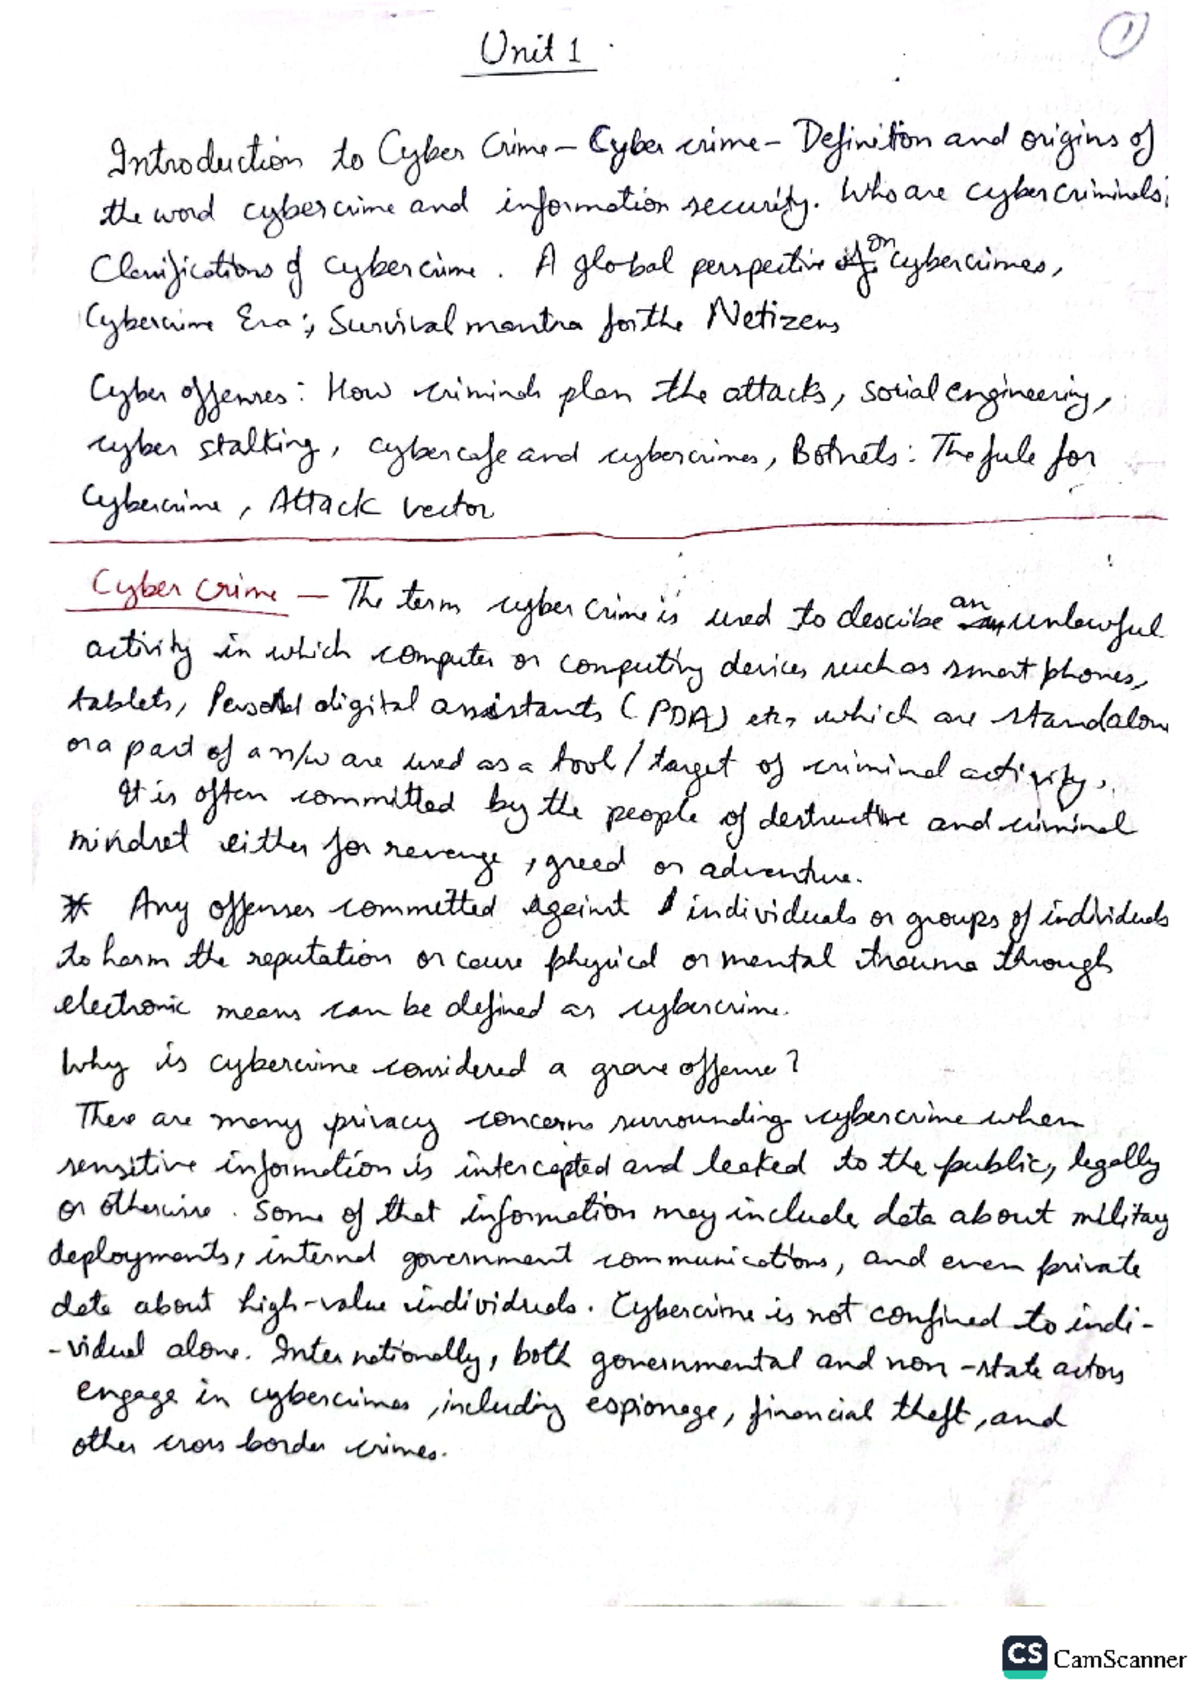 1
Unit 1
Introduction to Cyber Crime - Cyber crime - Definition and origins of
the word cybercrime and information security. Who are cybercriminals,
Classifications of cybercrime. A global perspective on cybercrimes,
Cybercrime Era; Survival mantra for the Netizens
Cyber offenses: How criminals plan the attacks, social engineering,
cyber stalking, cybercafe and cybercrimes, Botnets: The fule for
Cybercrime, Attack vector
Cyber Crime - The term cyber crime is used to describe an unlawful
activity in which computer or computing devices such as smart phones,
tablets, Personal digital assistants (PDA) etc, which are standalone
or a part of a n/w are used as a tool/target of criminal activity.
It is often committed by the people of destructive and criminal
mindset either for revenge, greed or adventure.
* Any offenses committed against individuals or groups of individuals
to harm the reputation or cause physical or mental trauma through
electronic means can be defined as cybercrime.
Why is cybercrime considered a grave offense?
There are many privacy concerns surrounding cybercrime when
sensitive information is intercepted and leaked to the public, legally
or otherwise. Some of that information may include data about military
deployments, internal government communications, and even private
data about high-value individuals. Cybercrime is not confined to indi-
-vidual alone. Internationally, both governmental and non-state actors
engage in cybercrimes, including espionage, financial theft, and
other cross border crimes.
CS CamScanner